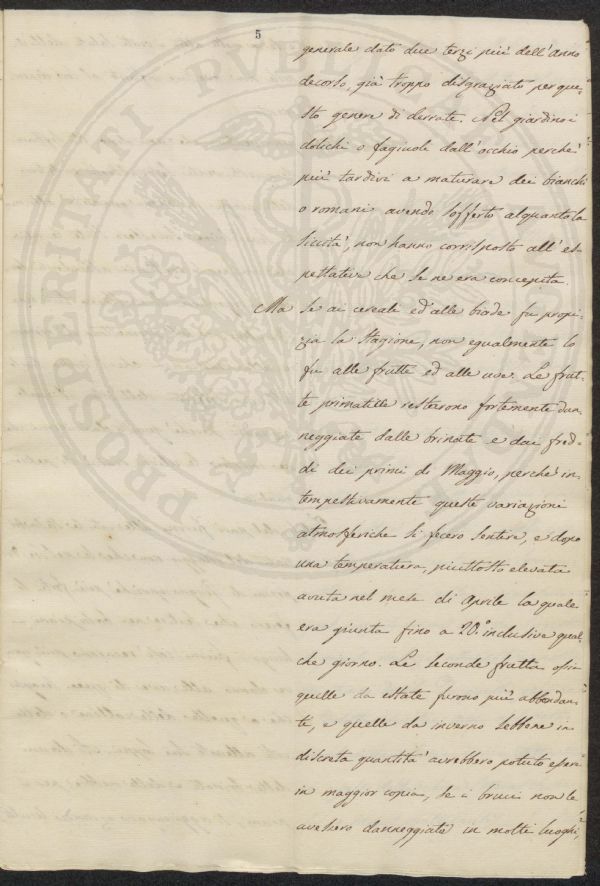 5
generale dato due terzi più dell'anno
decorso, già troppo disgraziato per que-
sto genere di derrate. Nel giardino i
dolichi o fagiuoli dall'occhio perchè
più tardivi a maturare dei bianchi
o romani avendo sofferto alquanto la
siccità, non hanno corrisposto all'es-
pettativa che se ne era concepita.
Ma se ai cereali ed alle biade fu propi-
zia la stagione, non egualmente lo
fu alle frutta ed alle uve. Le frut-
te primaticce restarono fortemente dan-
neggiate dalle brinate e dai fred-
di dei primi di Maggio, perchè in-
tempestivamente queste variazioni
atmosferiche si fecero sentire, e dopo
una temperatura piuttosto elevata
avuta nel mese di Aprile la quale
era giunta fino a 20.° inclusive qual-
che giorno. Le seconde frutta ossia
quelle da estate furono più abbondan-
ti, e quelle da inverno sebbene in
discreta quantità avrebbero potuto essere
in maggior copia, se i bruci non le
avessero danneggiate in molti luoghi,
PROSPERITATI PUBLICAE